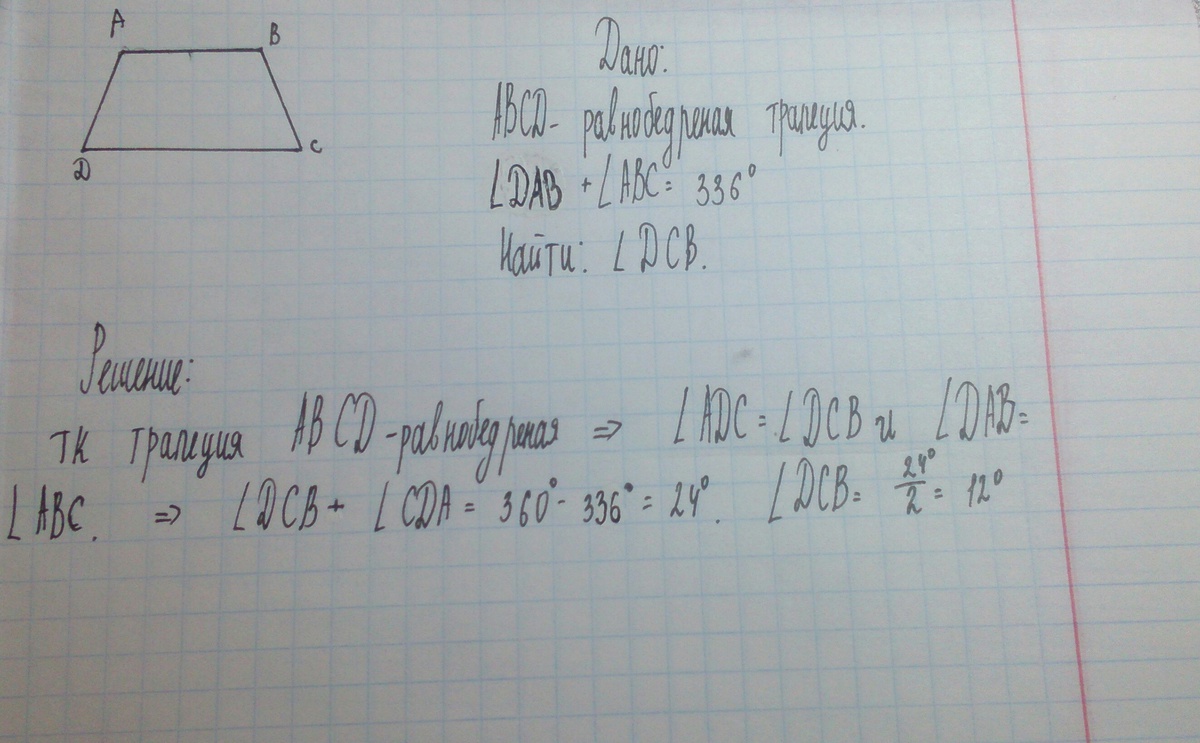 A B
D C
Дано:
ABCD- равнобедреная трапеция.
∠DAB + ∠ABC = 336°
Найти: ∠DCB.
Решение:
тк трапеция ABCD-равнобедреная ⇒ ∠ADC = ∠DCB и ∠DAB =
∠ABC. ⇒ ∠DCB + ∠CDA = 360° - 336° = 24°. ∠DCB = 24°/2 = 12°